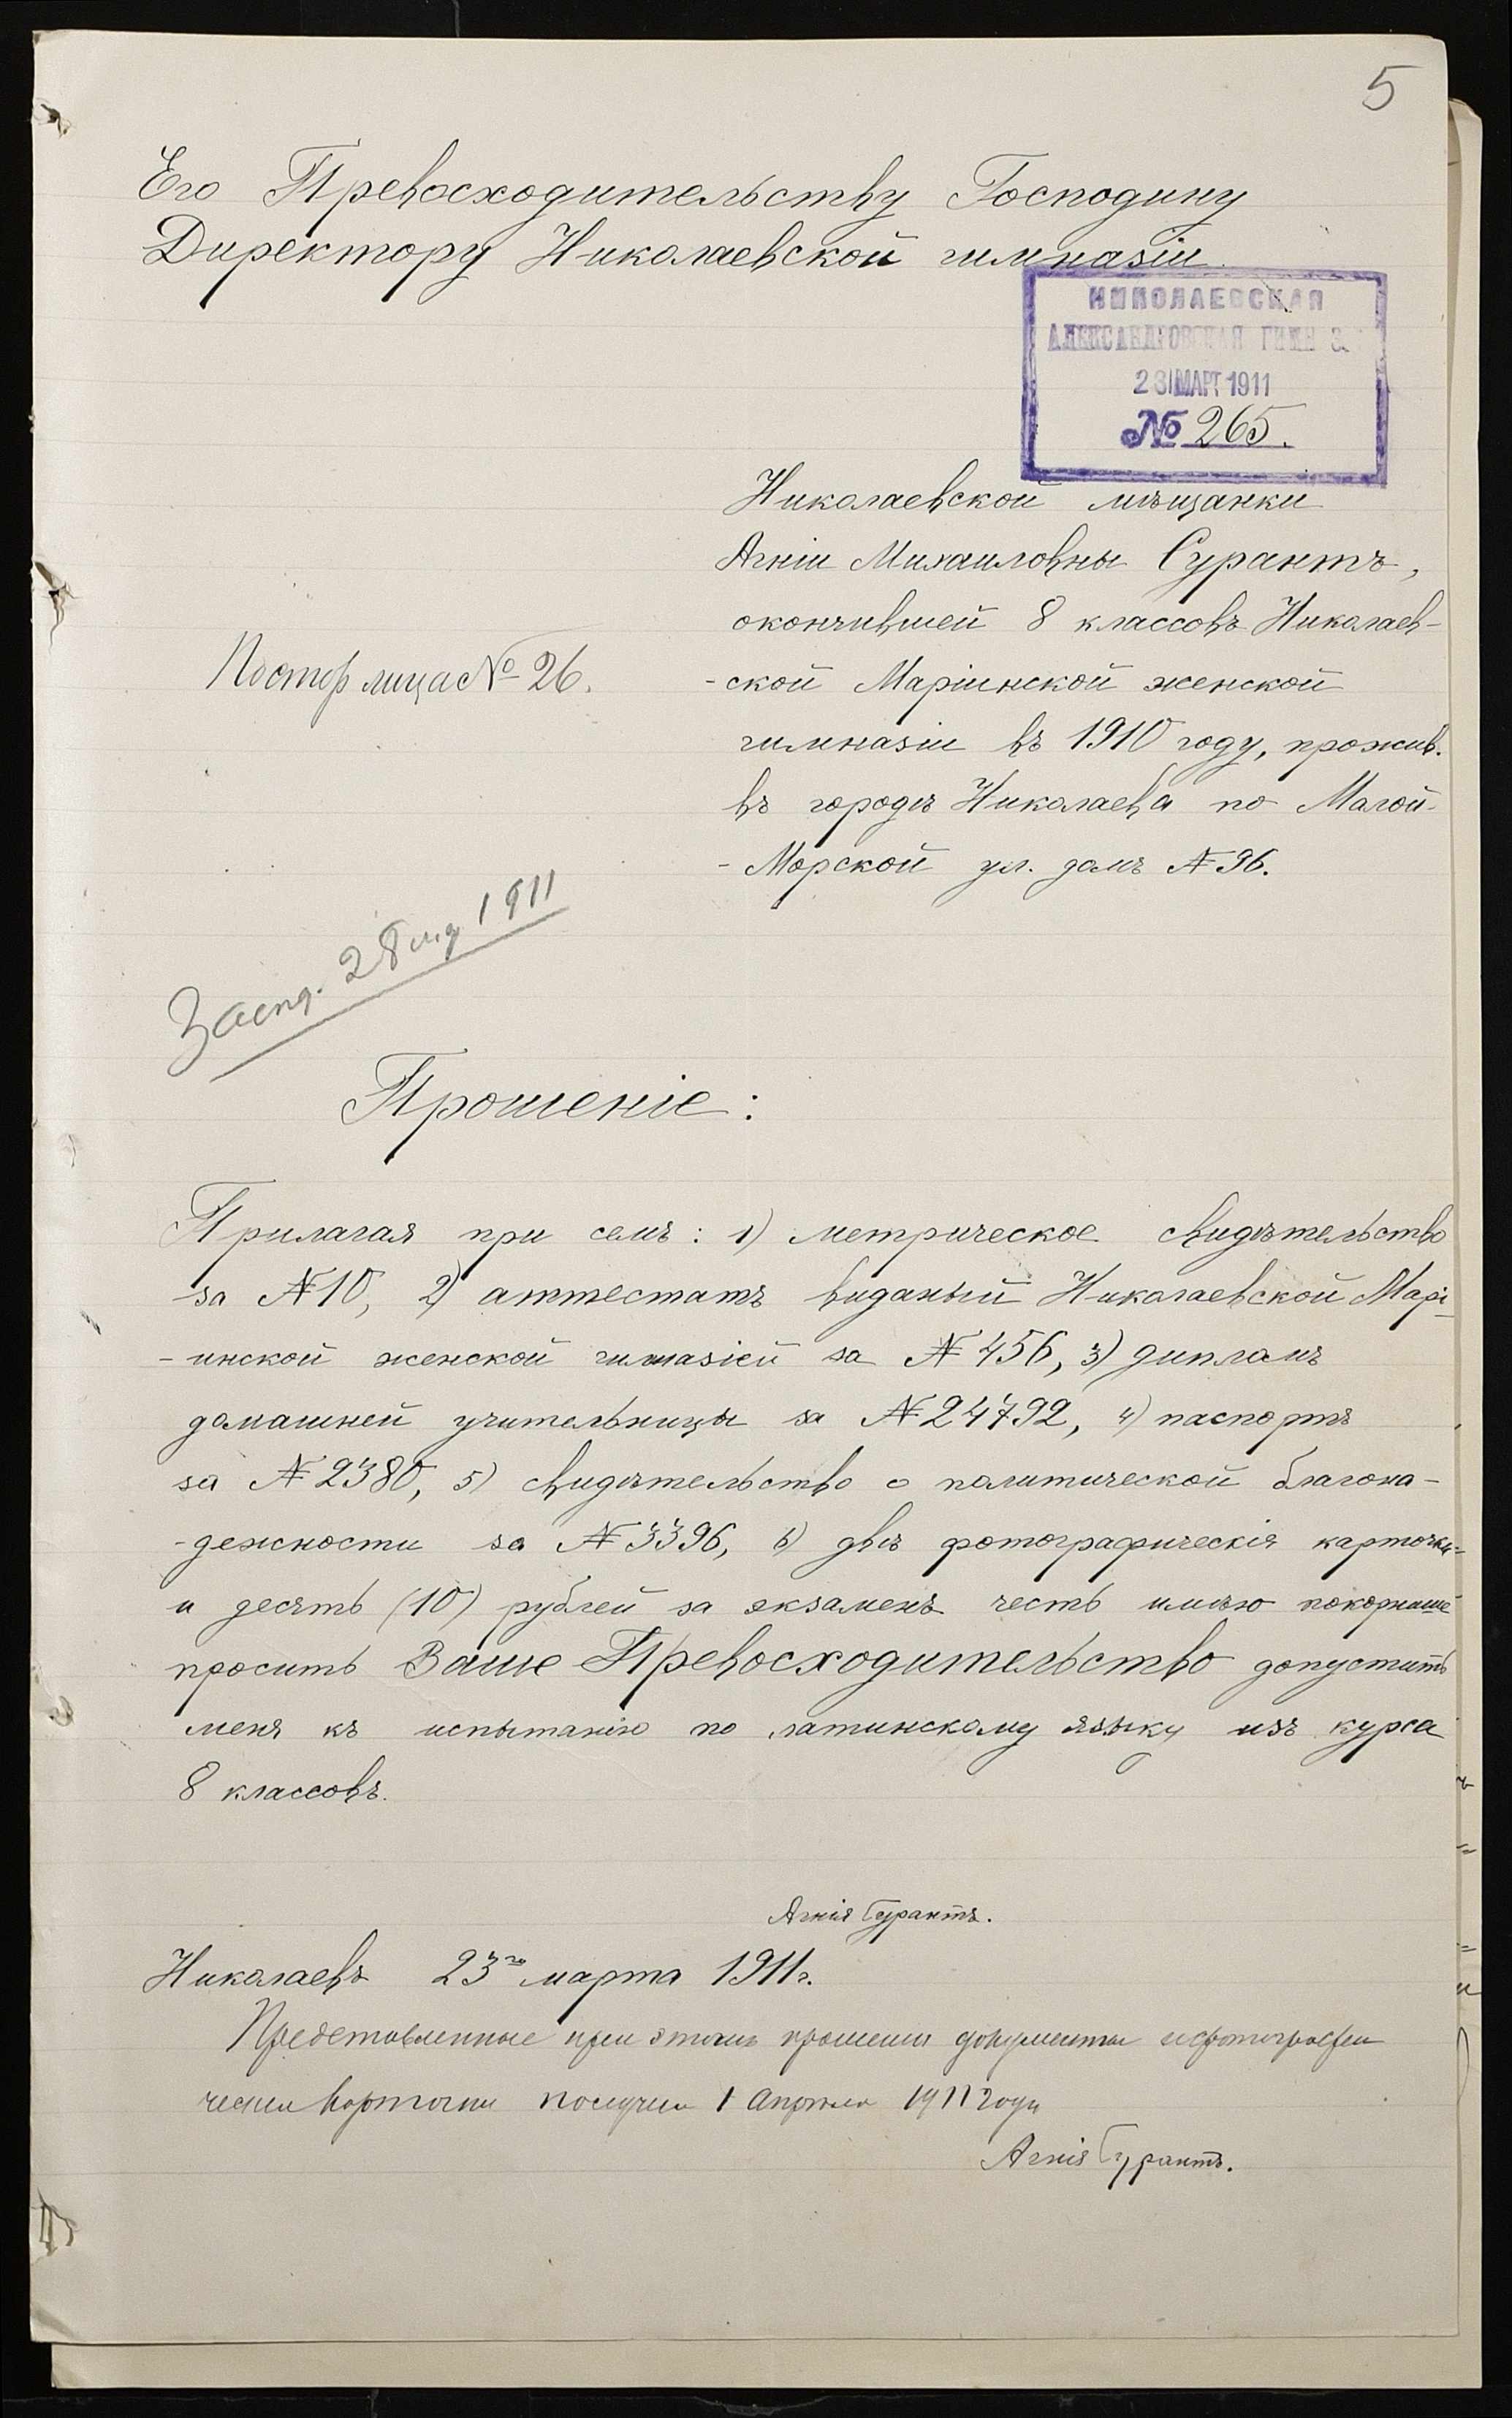 5
Его Превосходительству Господину
Директору Николаевской гимназіи.
НИКОЛАЕВСКАЯ
АЛЕКСАНДРОВСКАЯ ГИМНАЗ.
23 МАРТ 1911
№ 265.
Николаевской мѣщанки
Агніи Михаиловны Сурантъ,
окончившей 8 классовъ Николаев-
Постор лица № 26.
-ской Маріинской женской
гимназіи въ 1910 году, прожив.
въ городѣ Николаева по Малой-
-Морской ул. домъ № 96.
28 1911
Прошеніе:
Прилагая при семъ: 1) метрическое свидѣтельство
за № 10, 2) аттестатъ виданый Николаевской Марі-
-инской женской гимназіей за № 456, 3) дипломъ
домашней учительницы за № 24792, 4) паспортъ
за № 2380, 5) свидѣтельство о политической благона-
-дежности за № 3396, 6) двѣ фотографическія карточки-
и десять (10) рублей за экзаменъ честь имѣю покорнѣише
просить Ваше Превосходительство допустить
меня къ испытанію по латинскому языку изъ курса
8 классовъ.
Агнія Сурантъ.
Николаевъ 23го марта 1911г.
Представленные при этомъ прошении документы и фотографи
ческии карточки получила 1 апрѣля 1911 года
Агнія Сурантъ.